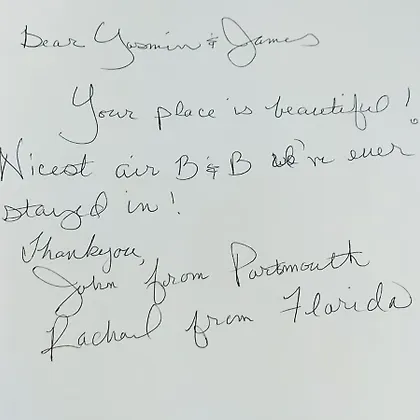 Dear Yasmin & James
Your place is beautiful!
Nicest air B & B we've ever
stayed in!
Thankyou,
John from Partmouth
Rachael from Florida